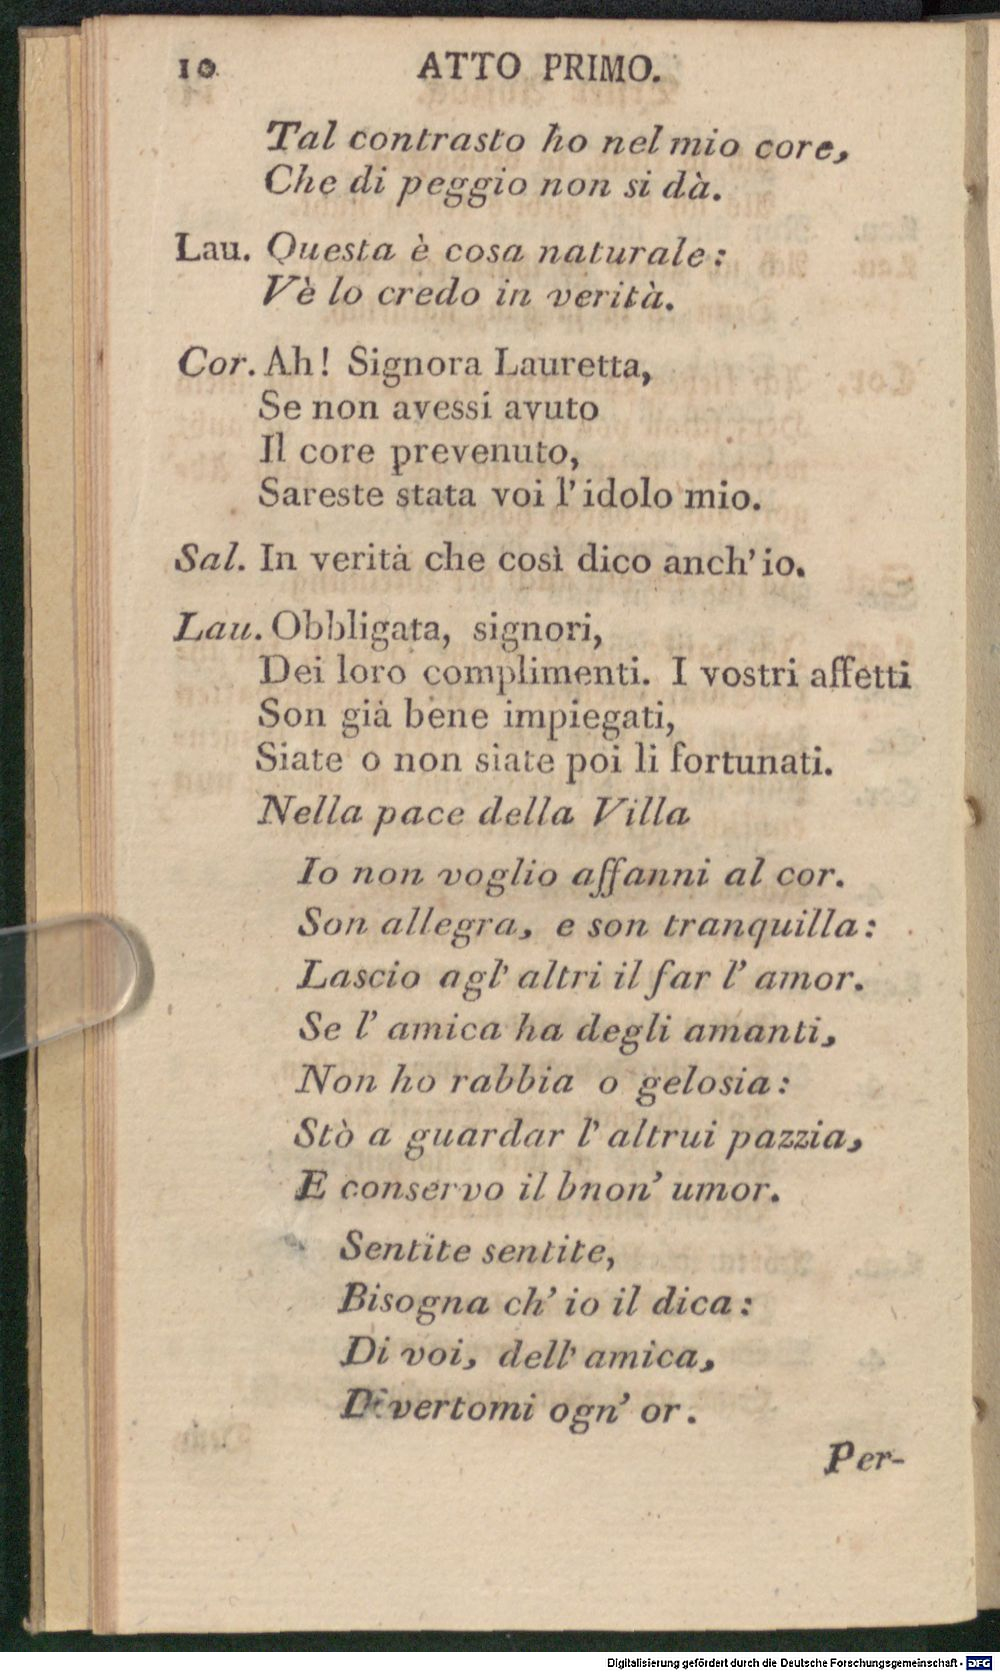 10 ATTO PRIMO.
Tal contrasto ho nel mio core,
Che di peggio non si dà.
Lau. Questa è cosa naturale:
Vè lo credo in verità.
Cor. Ah! Signora Lauretta,
Se non avessi avuto
Il core prevenuto,
Sareste stata voi l'idolo mio.
Sal. In verità che così dico anch'io.
Lau. Obbligata, signori,
Dei loro complimenti. I vostri affetti
Son già bene impiegati,
Siate o non siate poi li fortunati.
Nella pace della Villa
Io non voglio affanni al cor.
Son allegra, e son tranquilla:
Lascio agl' altri il far l' amor.
Se l' amica ha degli amanti,
Non ho rabbia o gelosia:
Stò a guardar l' altrui pazzia,
E conservo il bnon' umor.
Sentite sentite,
Bisogna ch' io il dica:
Di voi, dell' amica,
Divertomi ogn' or.
Per-
Digitalisierung gefördert durch die Deutsche Forschungsgemeinschaft - DFG